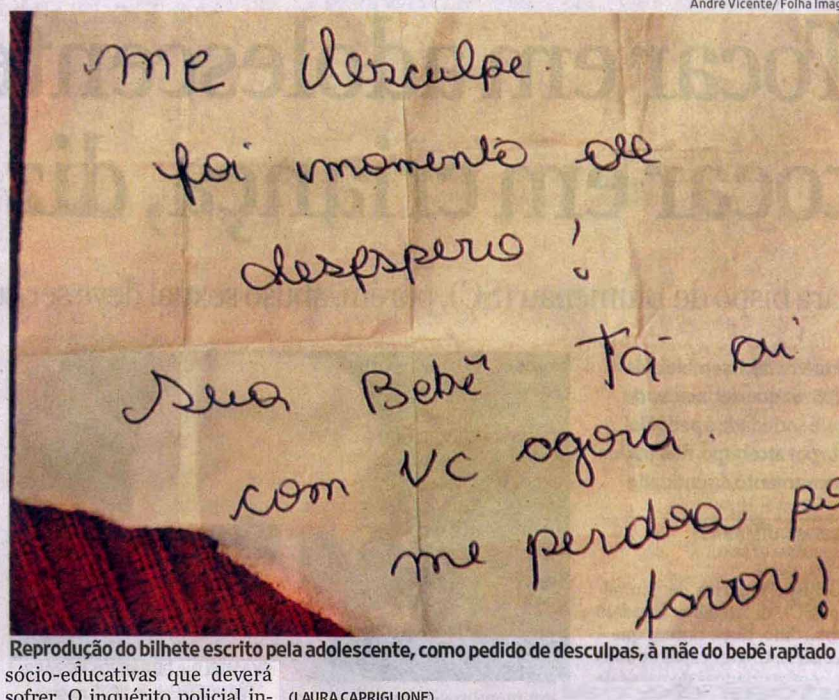 André Vicente/Folha Imag
me desculpe.
foi momento de
desespero!
sua Bebê Tá ai
com vc agora.
me perdoa po
favor!
Reprodução do bilhete escrito pela adolescente, como pedido de desculpas, à mãe do bebê raptado
sócio-educativas que deverá
sofrer. O inquérito policial in- (LAURA CAPRIGLIONE)